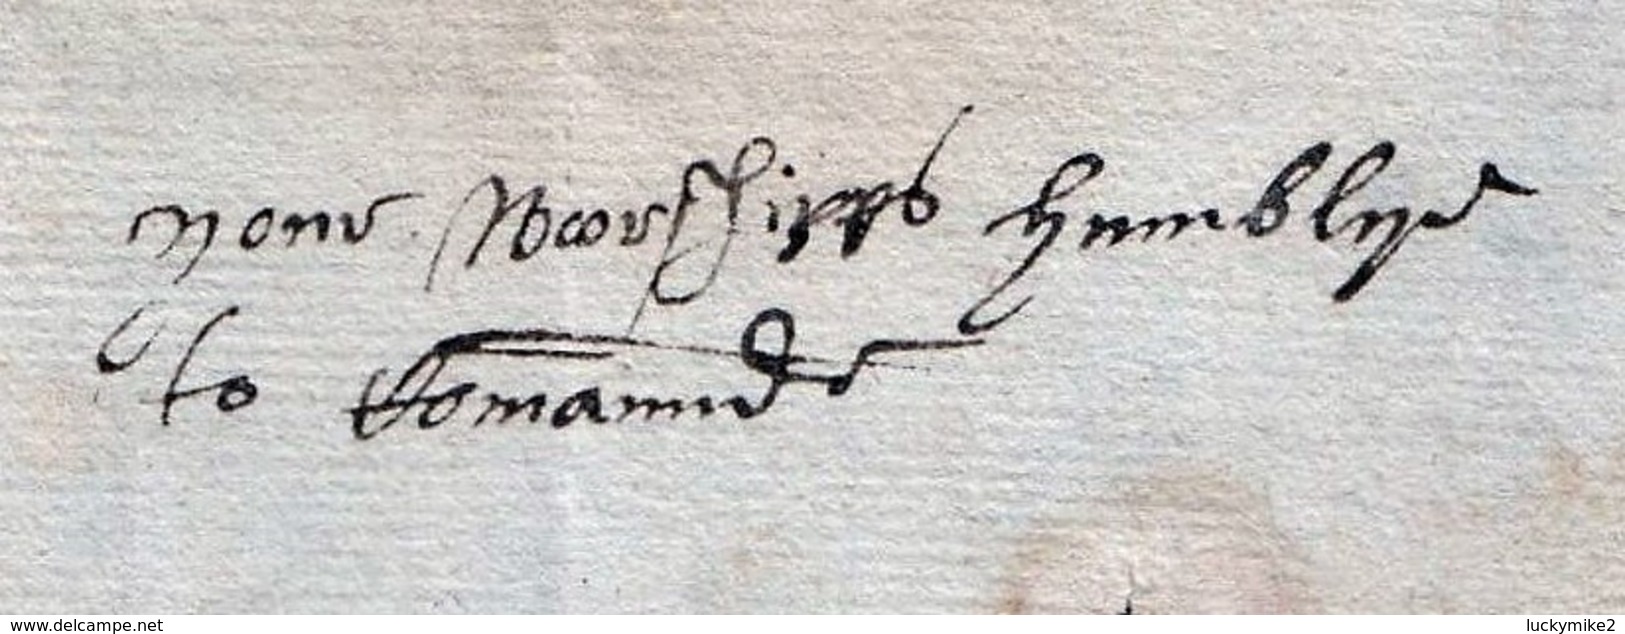 your Woorshipps humblye
to Comaunde
www.delcampe.net
luckymike2